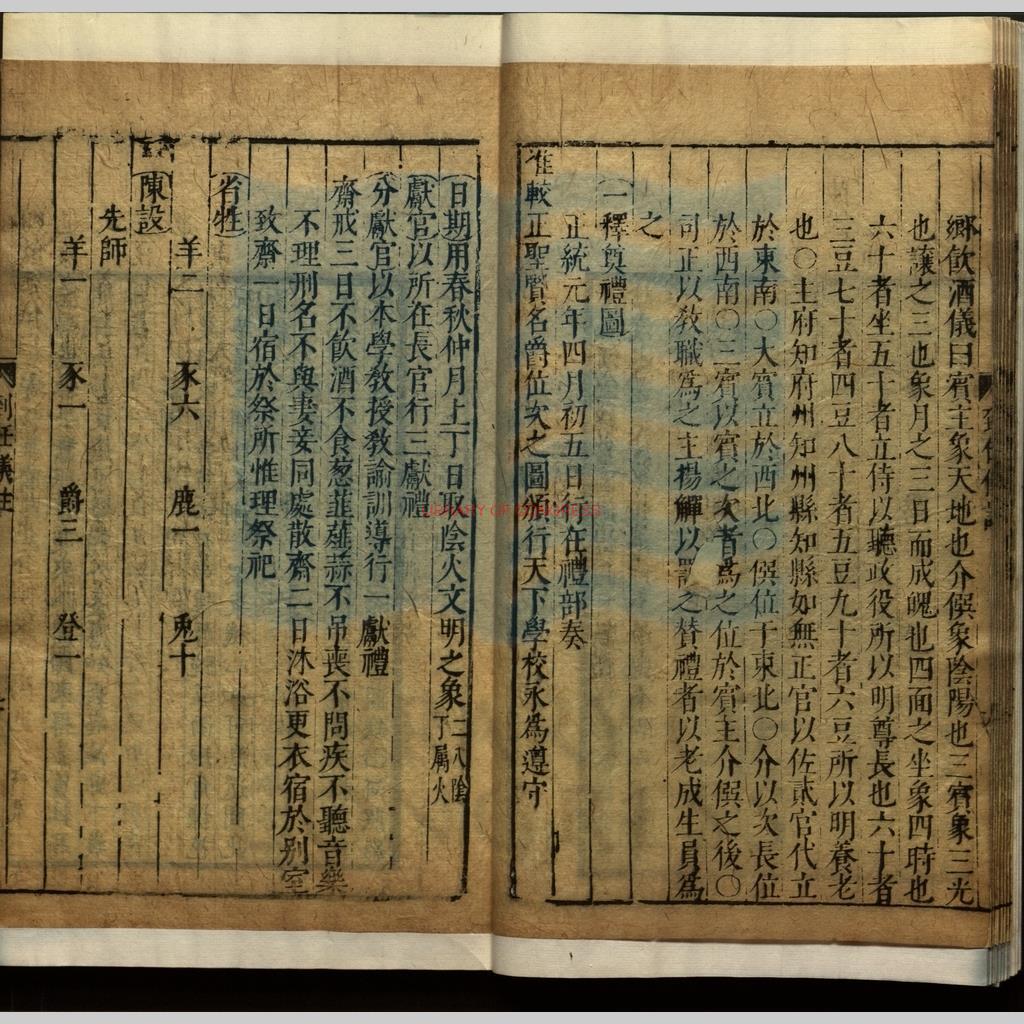 鄉飲酒儀曰賓主象天地也介僎象陰陽也三賓象三光
也讓之三也象月之三日而成魄也四面之坐象四時也
六十者坐五十者立侍以聽政役所以明尊長也六十者
三豆七十者四豆八十者五豆九十者六豆所以明養老
也○主府知府州知州縣知縣如無正官以佐貳官代立
於東南○大賓立於西北○僎位于東北○介以次長位
於西南○三賓以賓之次者爲之位於賓主介僎之後○
司正以敎職爲之主揚觶以罰之贊禮者以老成生員爲
之
一釋奠禮圖
正統元年四月初五日行在禮部奏
准較正聖賢名爵位次之圖頒行天下學校永爲遵守
日期用春秋仲月上丁日取陰火文明之象二八陰
丁屬火
獻官以所在長官行三獻禮
分獻官以本學敎授敎諭訓導行一獻禮
齋戒三日不飲酒不食葱韮薤蒜不吊喪不問疾不聽音樂
不理刑名不與妻妾同處散齋二日沐浴更衣宿於別室
致齋一日宿於祭所惟理祭祀
省牲
羊二 豕六 鹿一 兎十
陳設
先師
羊一 豕一 爵三 登一
LIBRARY OF CONGRESS